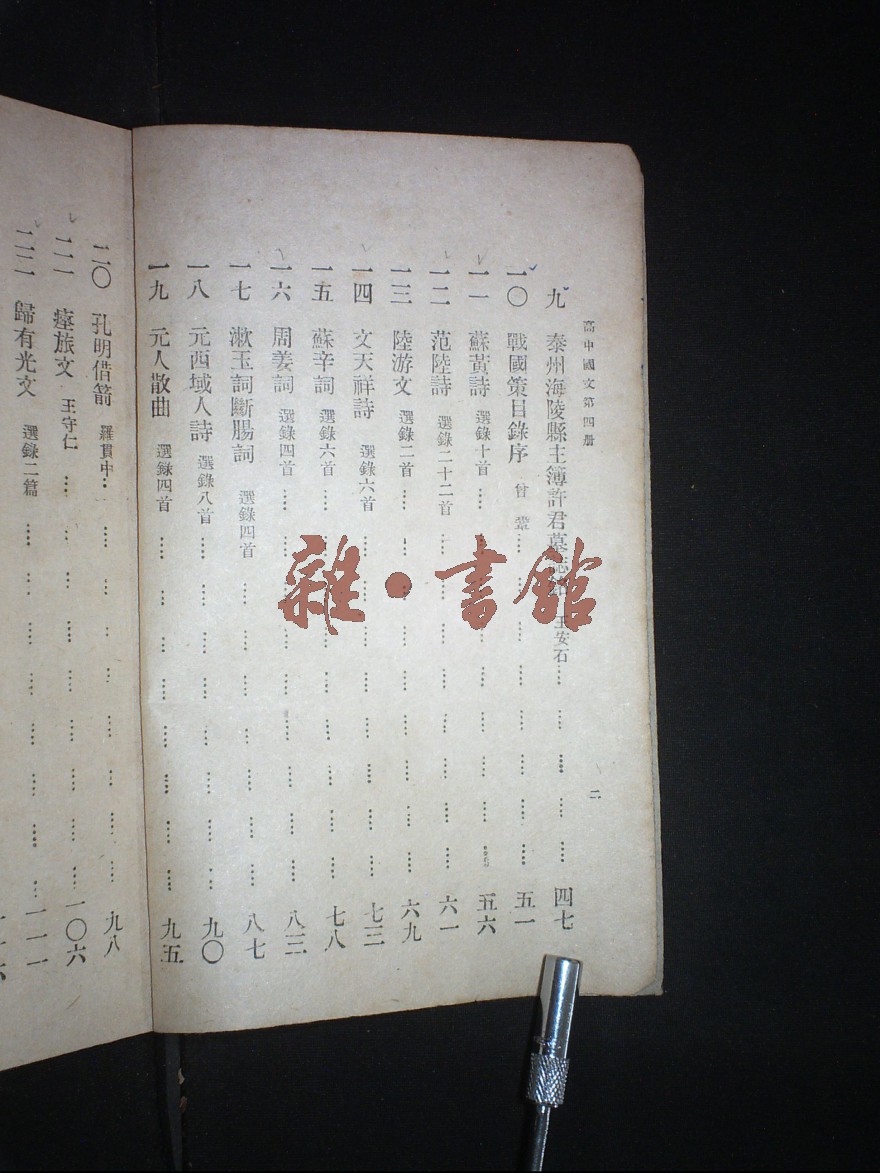 高中國文第四册
二
九 泰州海陵縣主簿許君墓誌銘 王安石 四七
一〇 戰國策目錄序 曾鞏 五一
一一 蘇黃詩 選錄十首 五六
一二 范陸詩 選錄二十二首 六一
一三 陸游文 選錄二首 六九
一四 文天祥詩 選錄六首 七三
一五 蘇辛詞 選錄六首 七八
一六 周姜詞 選錄四首 八三
一七 漱玉詞斷腸詞 選錄四首 八七
一八 元西域人詩 選錄八首 九〇
一九 元人散曲 選錄四首 九五
二〇 孔明借箭 羅貫中 九八
二一 瘞旅文 王守仁 一〇六
二二 歸有光文 選錄二篇 一一一
雜·書館